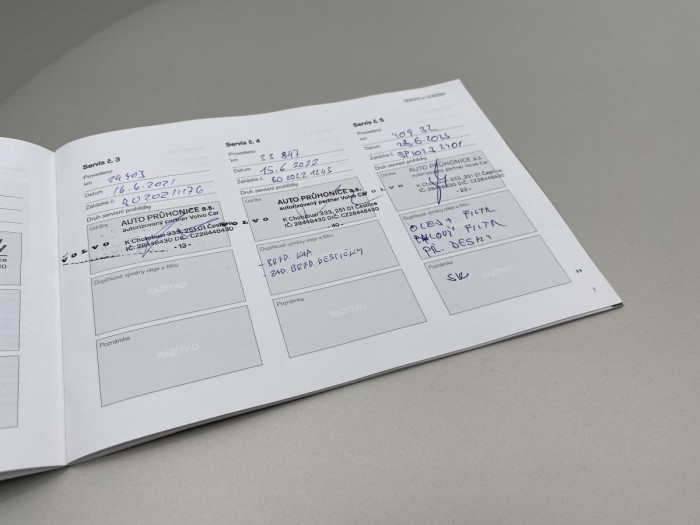 SERVIS A ÚDRŽBA
Servis č. 3
Provedeno
km 24 403
Datum 16.6.2021
Zakázka č.
Druh servisní prohlídky
Údržba
AUTO PRŮHONICE a.s.
autorizovaný partner Volvo Car
VOLVO
K Chotobuzi 333, 251 01 Čestlice
IČ: 28448430 DIČ: CZ28448430
- 19 -
Doplňkové výměny oleje a filtru
RAZÍTKO
Poznámka
RAZÍTKO
Servis č. 4
Provedeno
km 33 847
Datum 15.6.2022
Zakázka č.
Druh servisní prohlídky
Údržba
AUTO PRŮHONICE a.s.
autorizovaný partner Volvo Car
VOLVO
K Chotobuzi 333, 251 01 Čestlice
IČ: 28448430 DIČ: CZ28448430
- 40 -
Doplňkové výměny oleje a filtru
BRZD. KAP.
ZAD. BRZD. DESTIČKY
Poznámka
RAZÍTKO
Servis č. 5
Provedeno
km 409 32
Datum 23.6.2023
Zakázka č.
Druh servisní prohlídky
Údržba
AUTO PRŮHONICE a.s.
autorizovaný partner Volvo Car
VOLVO
K Chotobuzi 333, 251 01 Čestlice
IČ: 28448430 DIČ: CZ28448430
- 23 -
Doplňkové výměny oleje a filtru
OLEJ + FILTR
FILTR
PŘ. DESKY
Poznámka
RAZÍTKO
7